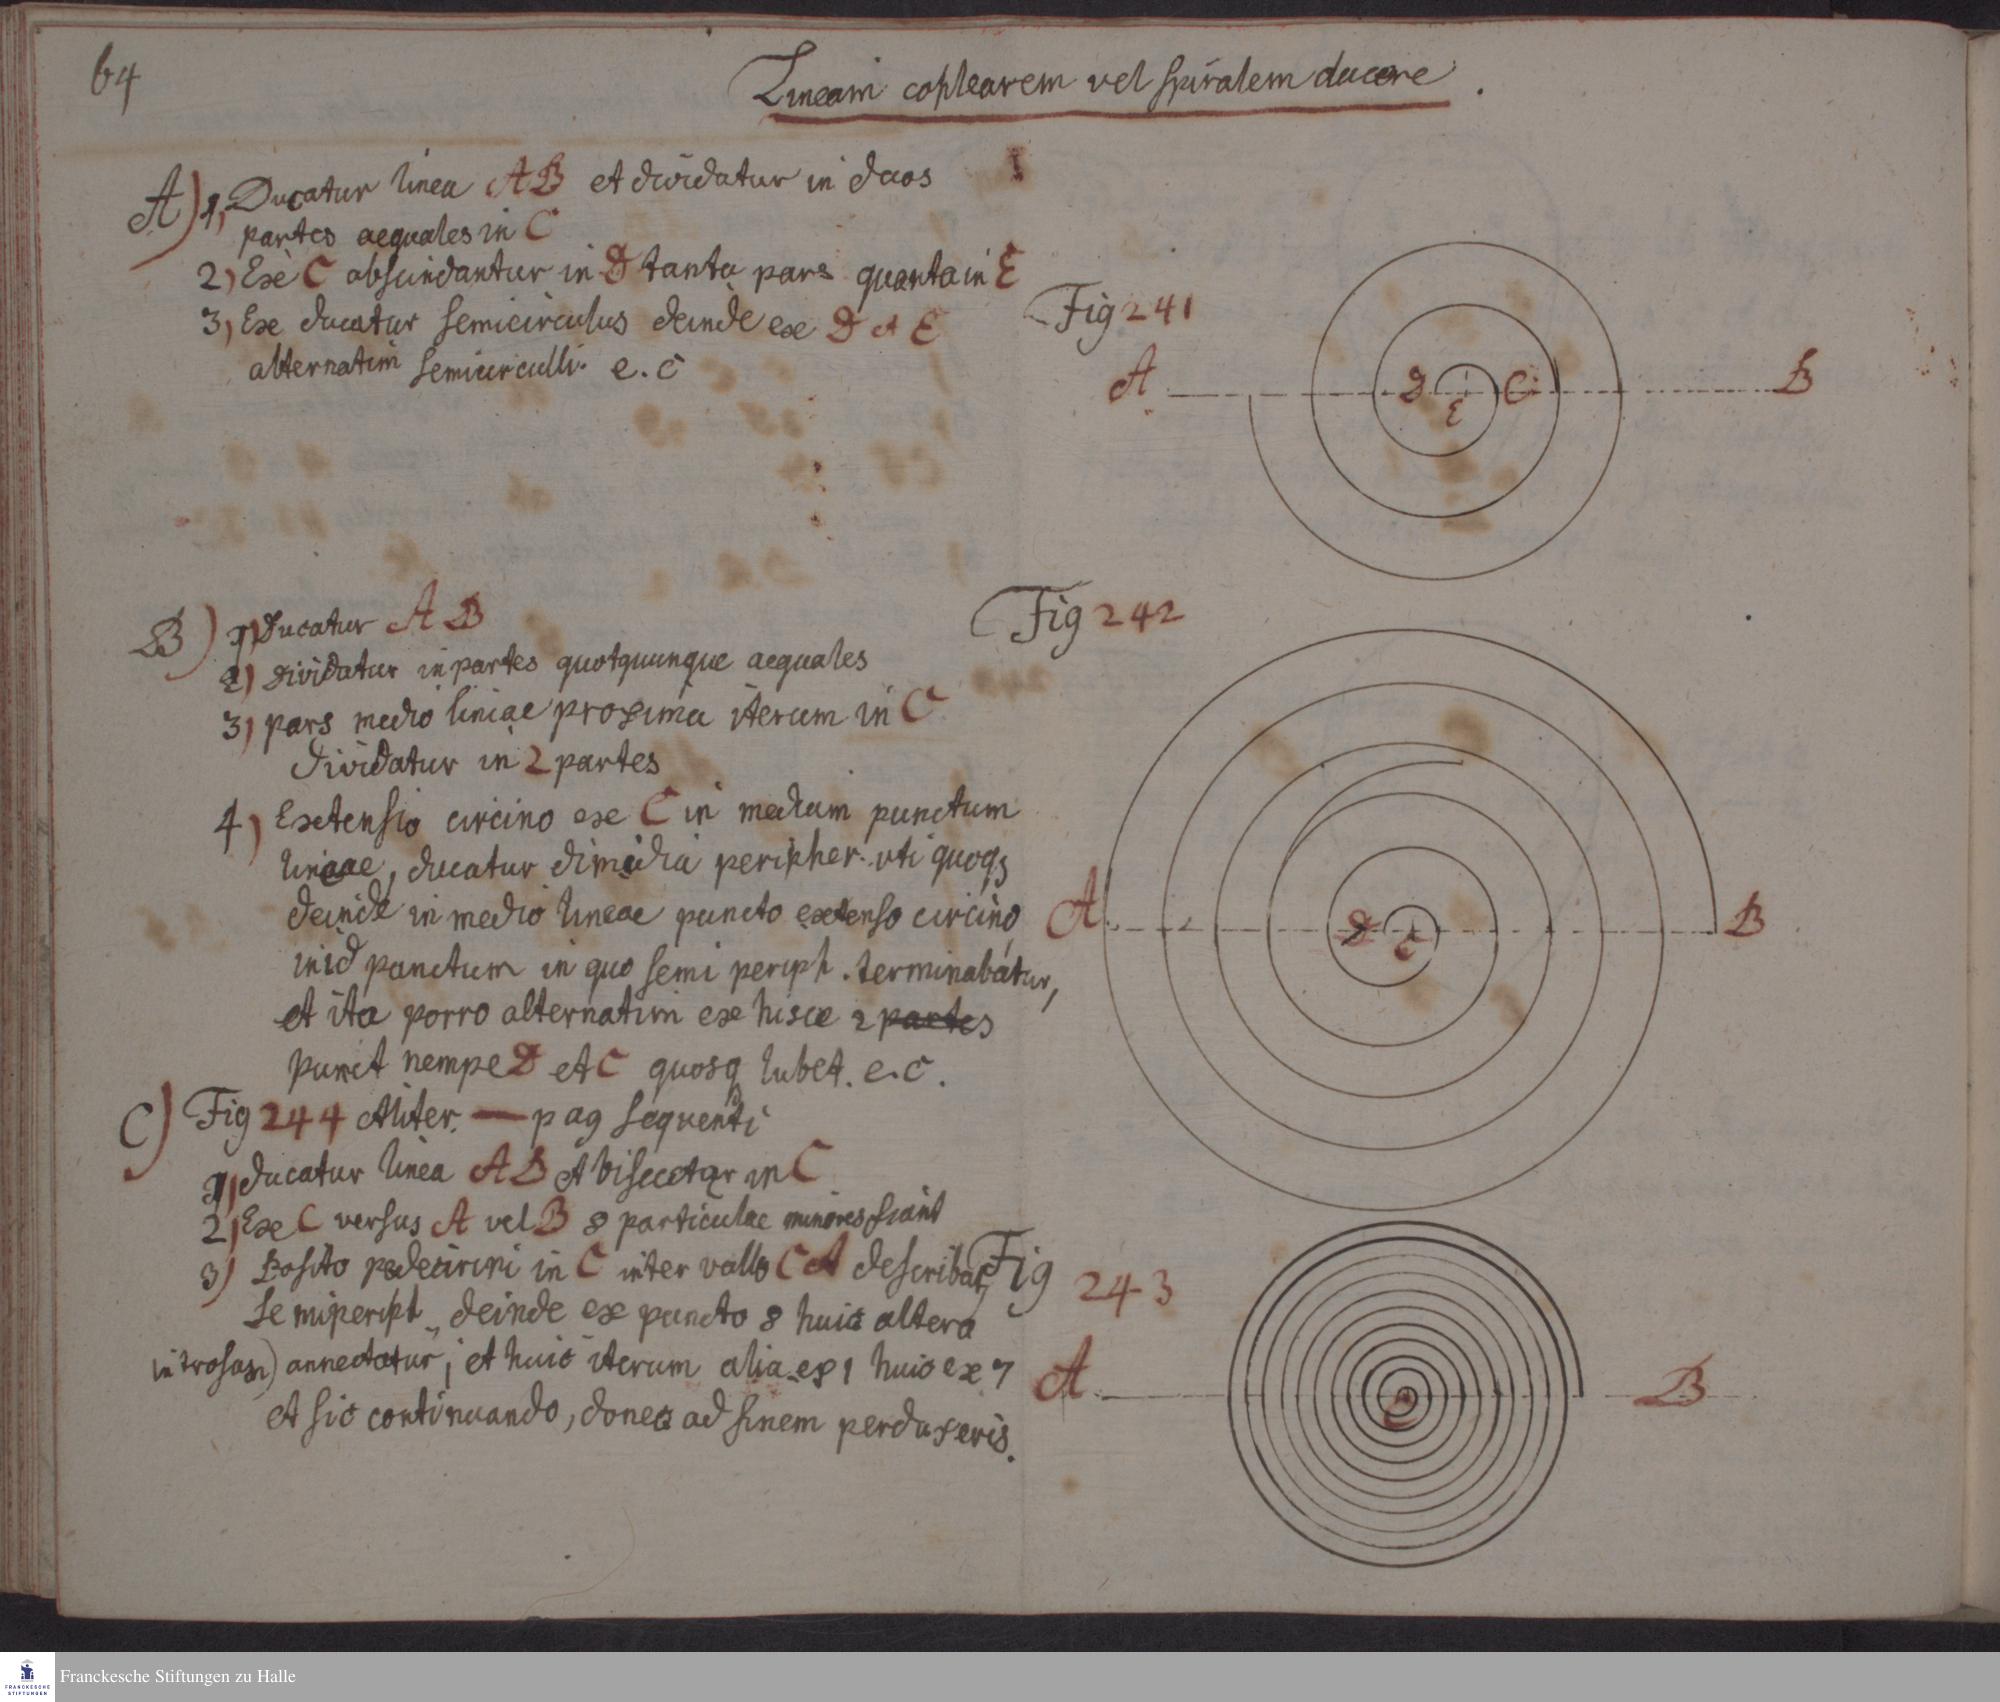 64
Lineam coplearem vel spiralem ducere.
A) 1, Ducatur linea AB et dividatur in duos
partes aequales in C
2) Ex C abscindantur in D tanta pars quanta in E
3) Ex ducatur semicirculus deinde ex D et E
alternatim semicirculli. e.c
Fig 241
A D E C B
B) 1) Ducatur AB
2) dividatur in partes quotquunque aequales
3) pars medio liniae proxima iterum in C
dividatur in 2 partes
4) Extensio circino ex C in medium punctum
lineae, ducatur dimidia peripher. uti quoq
deinde in medio lineae puncto extenso circino
in id punctum in quo semi periph. terminabatur,
et ita porro alternatim ex hisce 2 partes
punct nempe D et C quosq lubet. e.c.
Fig 242
A D C B
C) Fig 244 Aliter. — pag sequenti
1) ducatur linea AB et bisecetur in C
2) Ex C versus A vel B 8 particulae minores fiant
3) Posito pede circini in C inter vallo CA describat
semiperiph, deinde ex puncto 8 huic altera
introsum) annectatur, et huic iterum alia ex 1 huic ex 7
et sic continuando, donec ad finem perduxeris.
Fig 243
A C B
FRANCKESCHE
STIFTUNGEN
Franckesche Stiftungen zu Halle